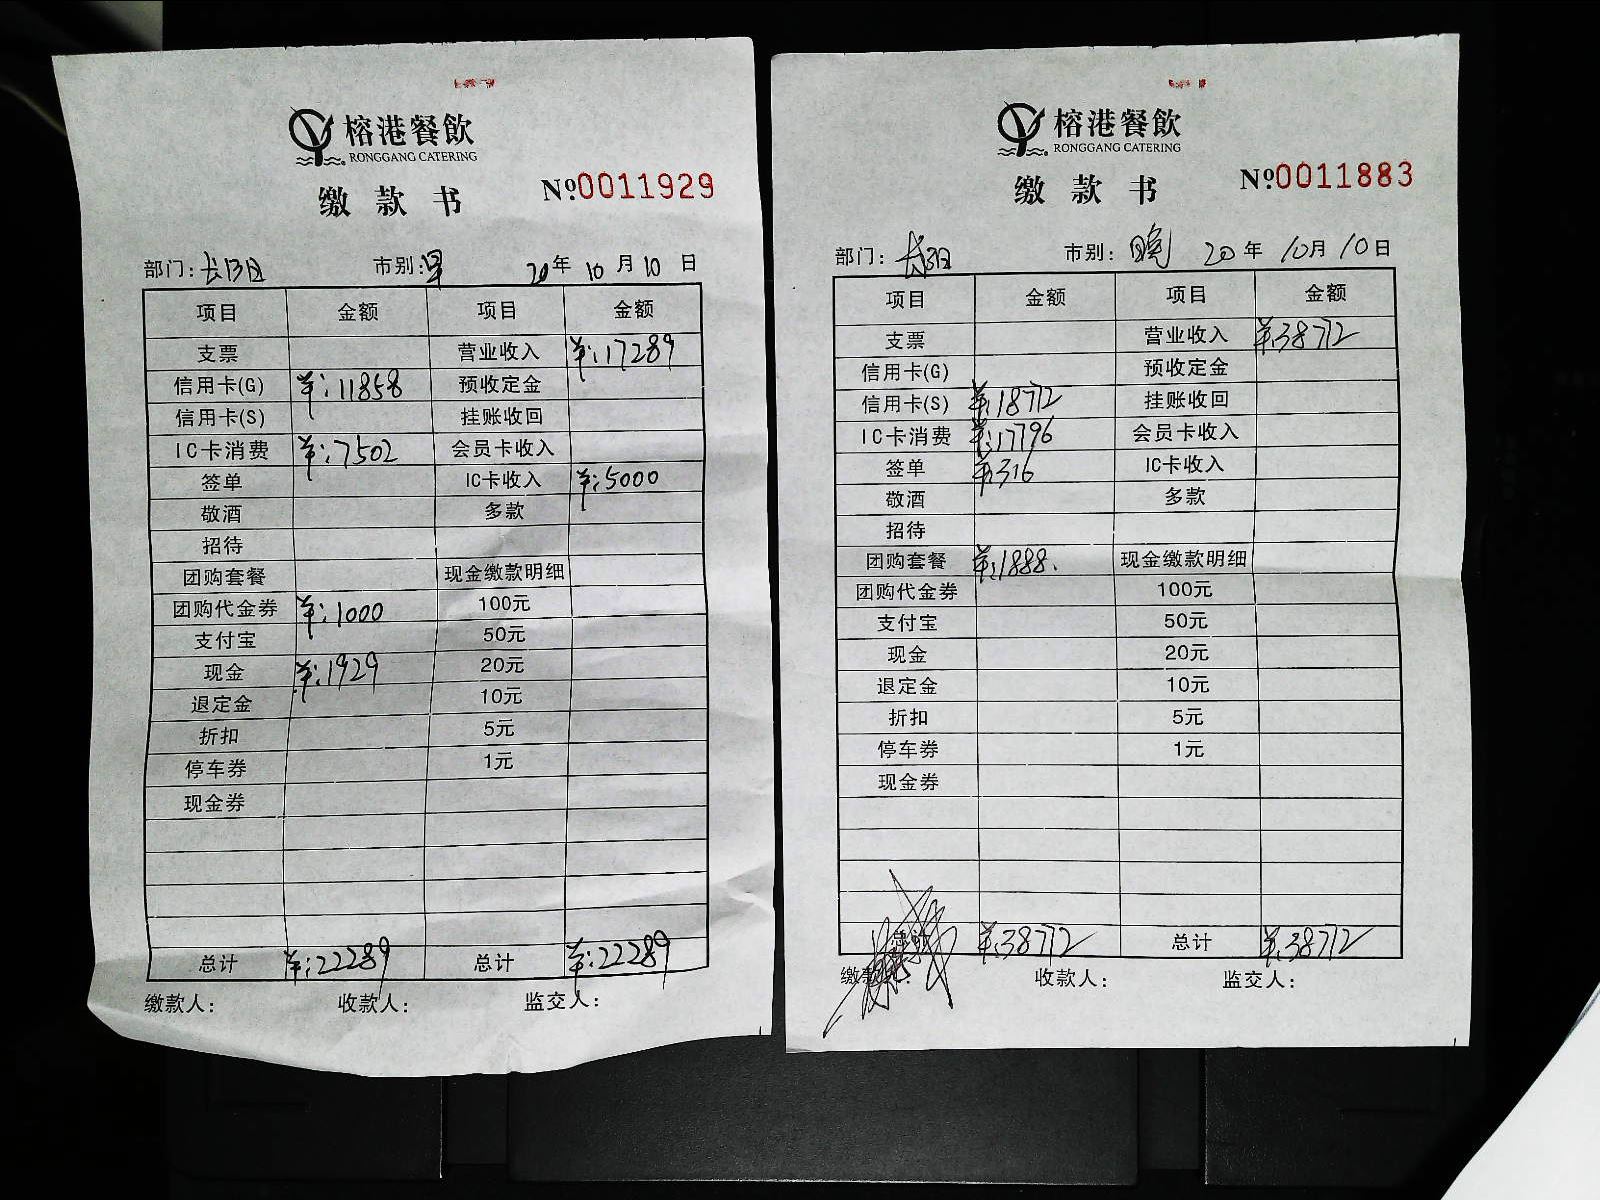 榕港餐飲
RONGGANG CATERING
缴款书
№0011929
部门: 市别:早 20年10月10日
项目 金额 项目 金额
支票 营业收入 ¥:17289
信用卡(G) ¥:11858 预收定金
信用卡(S) 挂账收回
IC卡消费 ¥:7502 会员卡收入
签单 IC卡收入 ¥:5000
敬酒 多款
招待
团购套餐 现金缴款明细
团购代金券 ¥:1000 100元
支付宝 50元
现金 ¥:1929 20元
退定金 10元
折扣 5元
停车券 1元
现金券
总计 ¥:22289 总计 ¥:22289
缴款人: 收款人: 监交人:
榕港餐飲
RONGGANG CATERING
缴款书
№0011883
部门: 市别:晚 20年10月10日
项目 金额 项目 金额
支票 营业收入 ¥:38712
信用卡(G) 预收定金
信用卡(S) ¥:18712 挂账收回
IC卡消费 ¥:17796 会员卡收入
签单 ¥:316 IC卡收入
敬酒 多款
招待
团购套餐 ¥:1888. 现金缴款明细
团购代金券 100元
支付宝 50元
现金 20元
退定金 10元
折扣 5元
停车券 1元
现金券
总计 ¥:38712 总计 ¥:38712
缴款人: 收款人: 监交人: